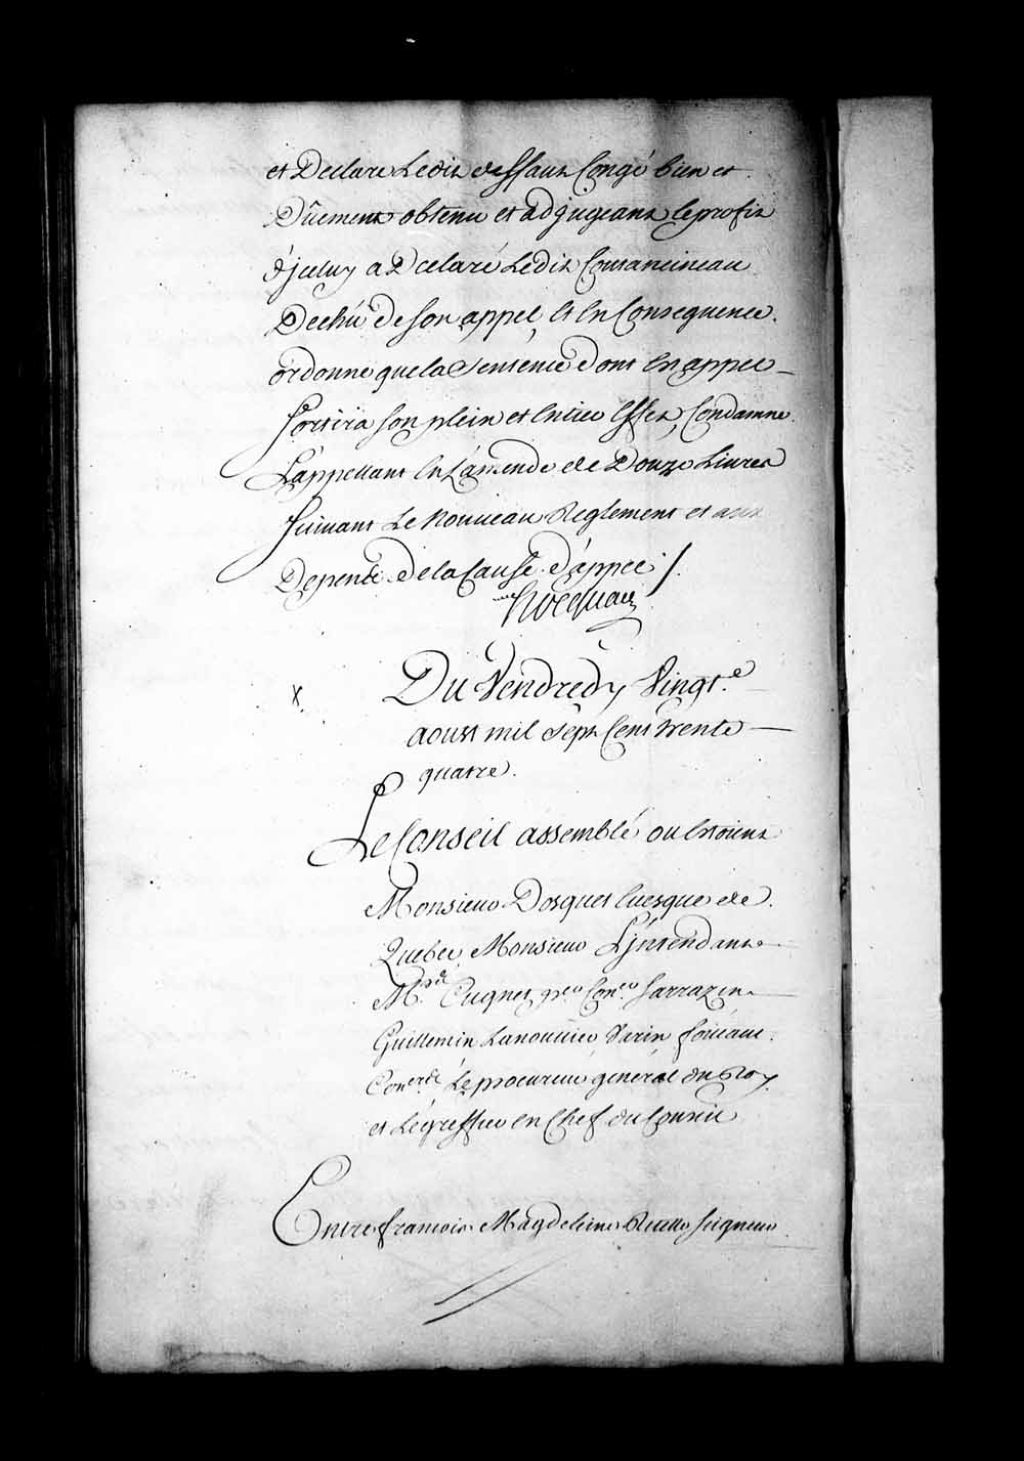 et Declare Ledit deffaut Congé bien et
Dûement obtenu et adjugeant le profit
d'jceluy a Declaré Ledit Courancineau
Dechû de son appel, Et En Consequence
ordonne que la Sentence dont En appel
Sortira son plein et Entier Effet, Condamne
L'appellant En L'amende de Douze Livres
suivant Le Nouveau Reglement et aux
Depens de la Cause d'appel ./.
Hocquart
X.
Du Vendredy Vingt.e
aoust mil Sept Cent trente
quatre.
Le Conseil assemblé ou Estoient
Monsieur Dosquet Evesque de
Quebec, Monsieur L'jntendant
M.rs Cugnet p.er Con.er Sarrazin
Guillemin Lanouiller Varin foucault
Con.ers Le procureur général du Roy
et Le greffier En Chef du Conseil
Entre francois Magdeleine Ruette seigneur